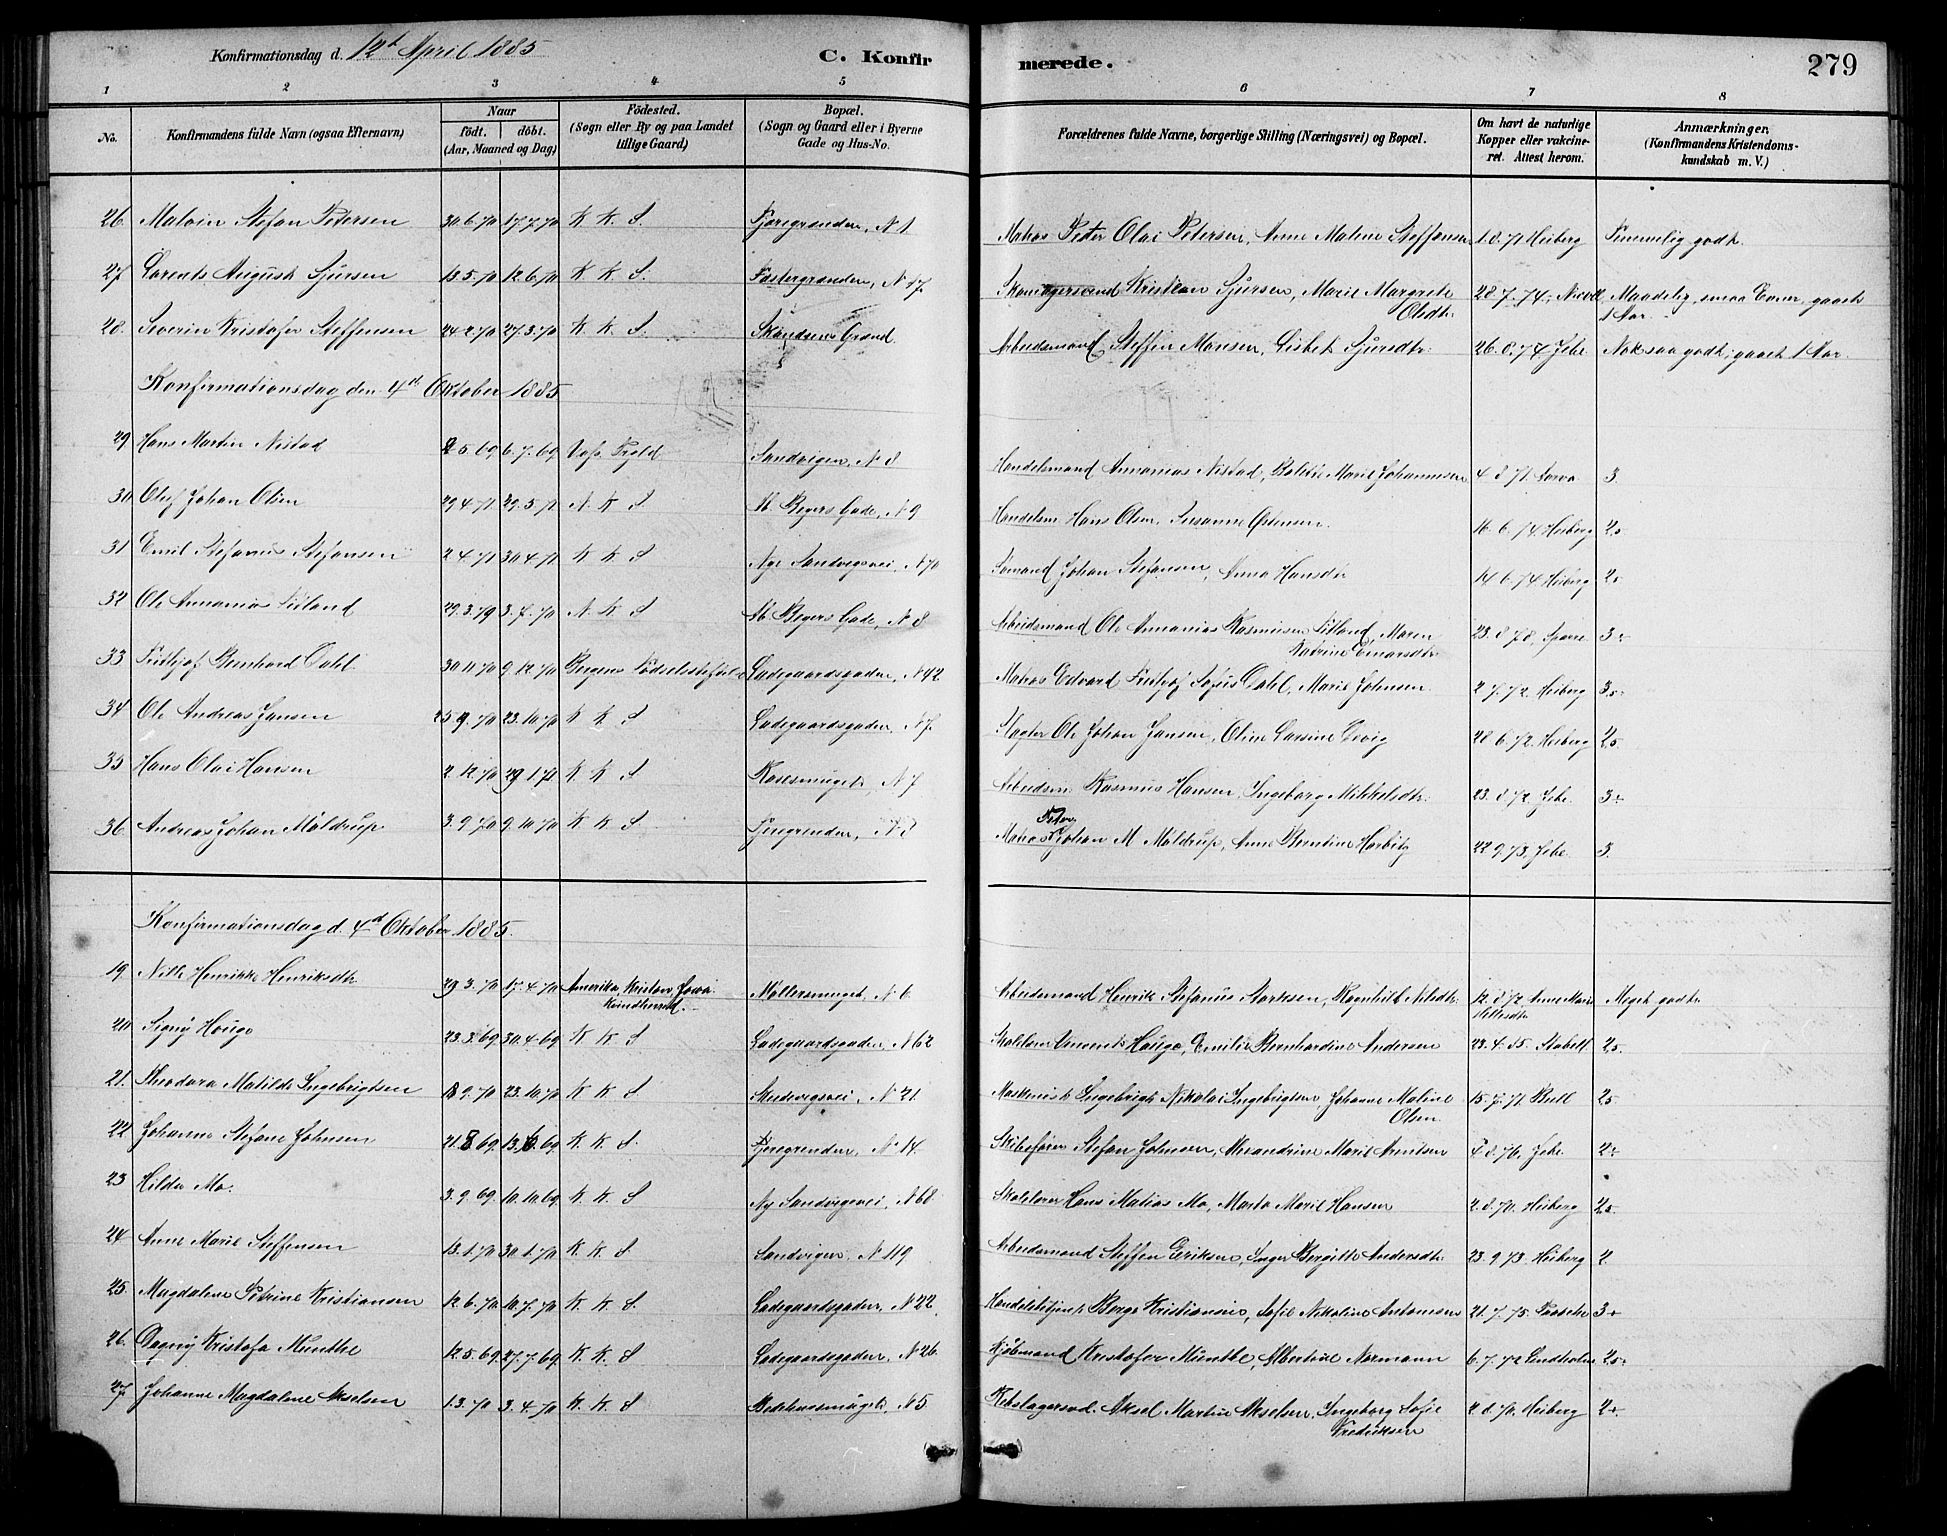 Konfirmationsdag d. 12te April 1885
C. Konfirmerede.
279
1 2 3 4 5 6 7 8
No.
Konfirmandens fulde Navn (ogsaa Efternavn)
Naar
født. døbt.
(Aar, Maaned og Dag)
Fødested.
(Sogn eller By og paa Landet
tillige Gaard)
Bopæl.
(Sogn og Gaard eller i Byerne
Gade og Hus-No.
Forældrenes fulde Navne, borgerlige Stilling (Næringsvei) og Bopæl.
Om havt de naturlige
Kopper eller vakcine-
ret. Attest herom.
Anmærkninger.
(Konfirmandens Kristendoms-
kundskab m. V.)
26 Malvin Stefan Petersen 30.6.70 17.7.70 K. K. S. Fjæregrænden, N 1 Matros Peter Olai Petersen, Anne Maline Steffensen 1.8.71 Heiberg Temmelig godt.
27 Lorents August Sjursen 13.5.70 12.6.70 K. K. S. N 17. Kristian Sjursen, Marie Margrete Olsdtr. 28.7.74, Maadelig, smaa Evner, gaaet 1 Aar.
28. Severin Kristofer Steffensen 24.2.70 27.3.70 K. K. S. Skandsens Grænd. Arbeidsmand Steffen Monsen, Lisbet Sjursdtr. 26.8.74 Jebe. Noksaa godt; gaaet 1 Aar.
Konfirmationsdag den 4de Oktober 1885
29 Hans Martin Nistad 5.69 6.7.69 Voss Sandvigen, N 8 Handelsmand Annanias Nistad, Marie Johannesen 4.8.71. 3.
30 Oluf Johan Olsen 29.4.71 29.5.71 N. K. S. M. Beyers Gade, N 9 Handelsm. Hans Olsen, Susanne Østensen. 16.6.74. Heiberg 2,5
31 Emil Stefanus Stefansen 2.4.71 30.4.71 K. K. S. Nye Sandvigsvei, N 70 Sømand Johan Stefansen, Anna Hansdtr 14.6.74 Heiberg 2,5
32 Ole Annanias N. K. S M. Beyers Gade, N 8 Arbeidsmand Ole Annanias Rasmusen Maren Katrine Einarsdtr. 23.8.78, Sparre 3÷
33 Fridtjof Bernhard Dahl. 30.11.70 9.12.70 Bergens Fødselsstiftelse Ladegaardsgaden, N 42 Matros Edvard Fridtjof Dahl, Marie Johnsen. 2.7.72. Heiberg
34 Ole Andreas Jansen 25.9.70 23.10.70 K K S Ladegaardsgaden, N 7. Slagter Ole Johan Jansen, Oline 28.6.72. Heiberg 2,5.
35 Hans Olai Hansen 2.12.70 29.1.71 K K S N 7 Arbeidsm. Rasmus Hansen, Ingeborg Mikkelsdtr. 23.8.72. Jebe. 3÷
36 Andreas Johan Møldrup. 3.9.70 9.10.70 K K S Fjæregrænden, N 8 Matros Peter Johan M. Møldrup, Anne Berntine Harbitz 22.9.73, Jebe 3.
Konfirmationsdag d. 4de Oktober 1885.
19. Nille Henrikke Henriksdtr 29.3.70 17.4.70 Amerika, Jowa. Møllersmuget, N 6 Arbeidsmand Henrik Stefanus Ragnhild Nilsdtr. 12.8.72 Anne Marie Meget godt
20 Signy Hougo 23.3.69 30.4.69 K K S Ladegaardsgaden, N 62 Skolelærer Hougo, Emilie Bernhardine Andersen Stabell 2,5.
21. Theodora Matilde Ingebrigtsen 18.9.70 23.10.70 K K S N 21. Maskinist Ingebrigt Nikolai Ingebrigtsen Johanne Maline Olsen 15.7.71. Bull 2,5
22 Johanne Stefane Johnsen 21.8.69 13.6.69 K. K. S. Fjæregrænden, N 14. Skibsfører Stefan Johnsen, Alexandrine Marie Arentsen 8.76. Jebe 2÷
23 Hilda Mo. 3.9.69. 10.10.69 K. K. S Ny Sandvigsvei, N 68 Skolelærer Hans Matias Mo, Marta Marie Hansen 2.8.70. Heiberg 2,5.
24 Anne Marie Steffensen 13.1.70 30.1.70 K. K. S. Sandvigen, N 119 Arbeidsmand Steffen Eriksen, Inger Bergitte Andersdtr. 23.9.73. Heiberg 2
25. Magdalene Petrine Kristiansen 12.6.70 10.7.70 K. K. S. Ladegaardsgaden, N 22. Handelsbetjent Børge Kristiansen, Sofie Nikoline Antonsen 21.7.75. Paasche 3+
26. Dagny Kristofa Munthe 12.5.69 27.7.69. K. K. S Ladegaardsgaden, N 26. Kjøbmand Kristofer Munthe, Albertine Normann 6.7.72 Lindholm
27. Johanne Magdalene Akselsen 1.3.70 3.4.70 K. K. S Bedehusmuget, N 5 Aksel Martin Akselsen, Ingeborg Sofie Fredriksen 2.8.70. Heiberg 2÷